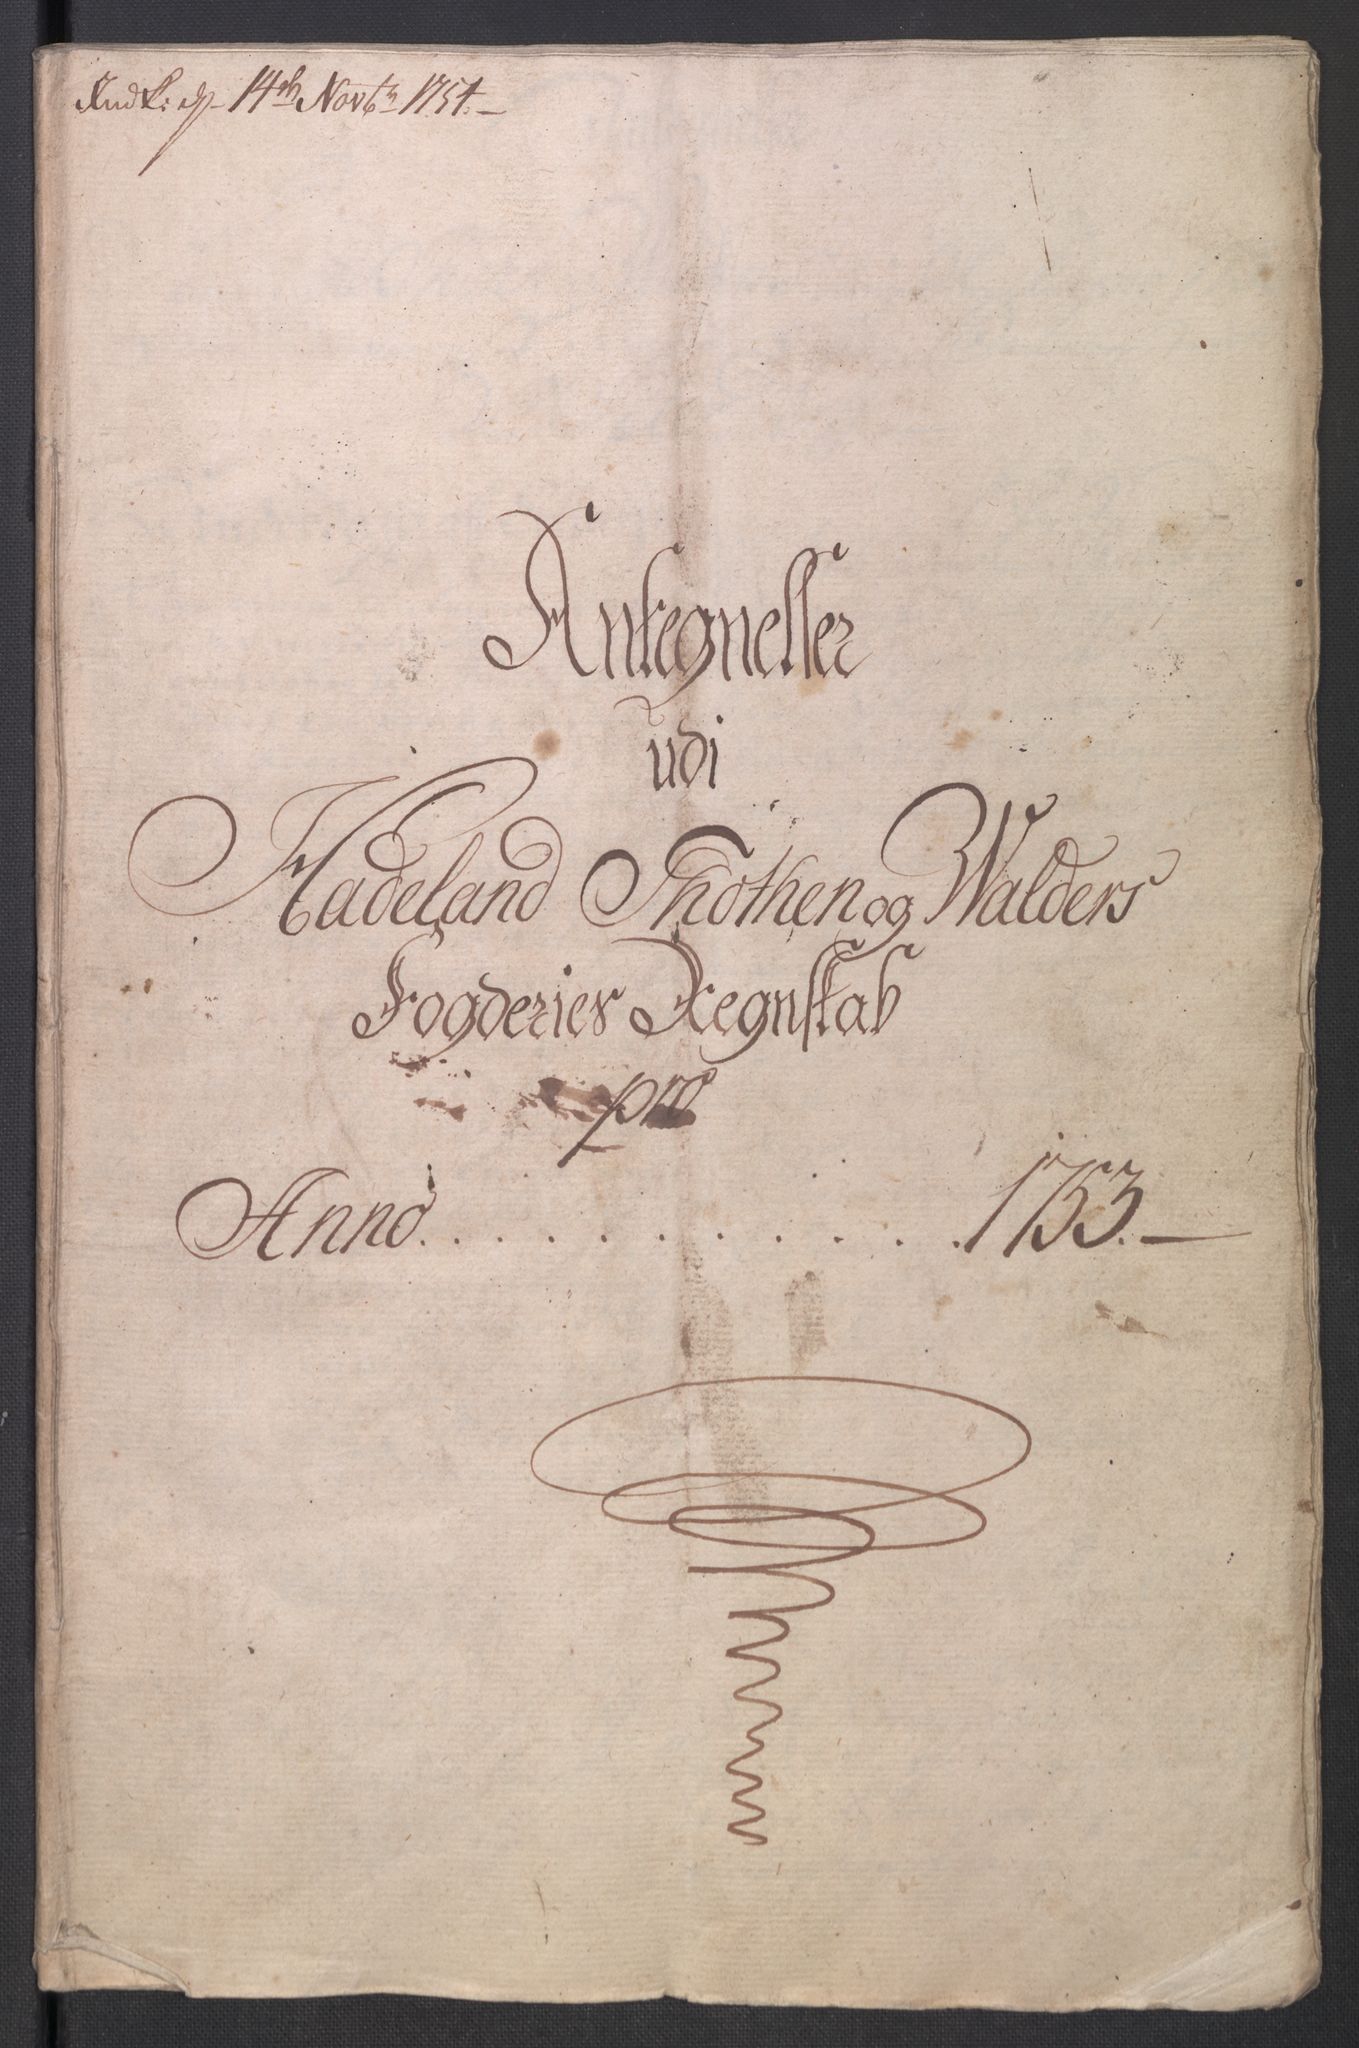 Indk: d. 14de Novbr 1754.
Antegnelser
udi
Hadeland Thothen og Walders
Fogderies Regnskab
pro
Anno. . . . . . . . . . . . 1753.